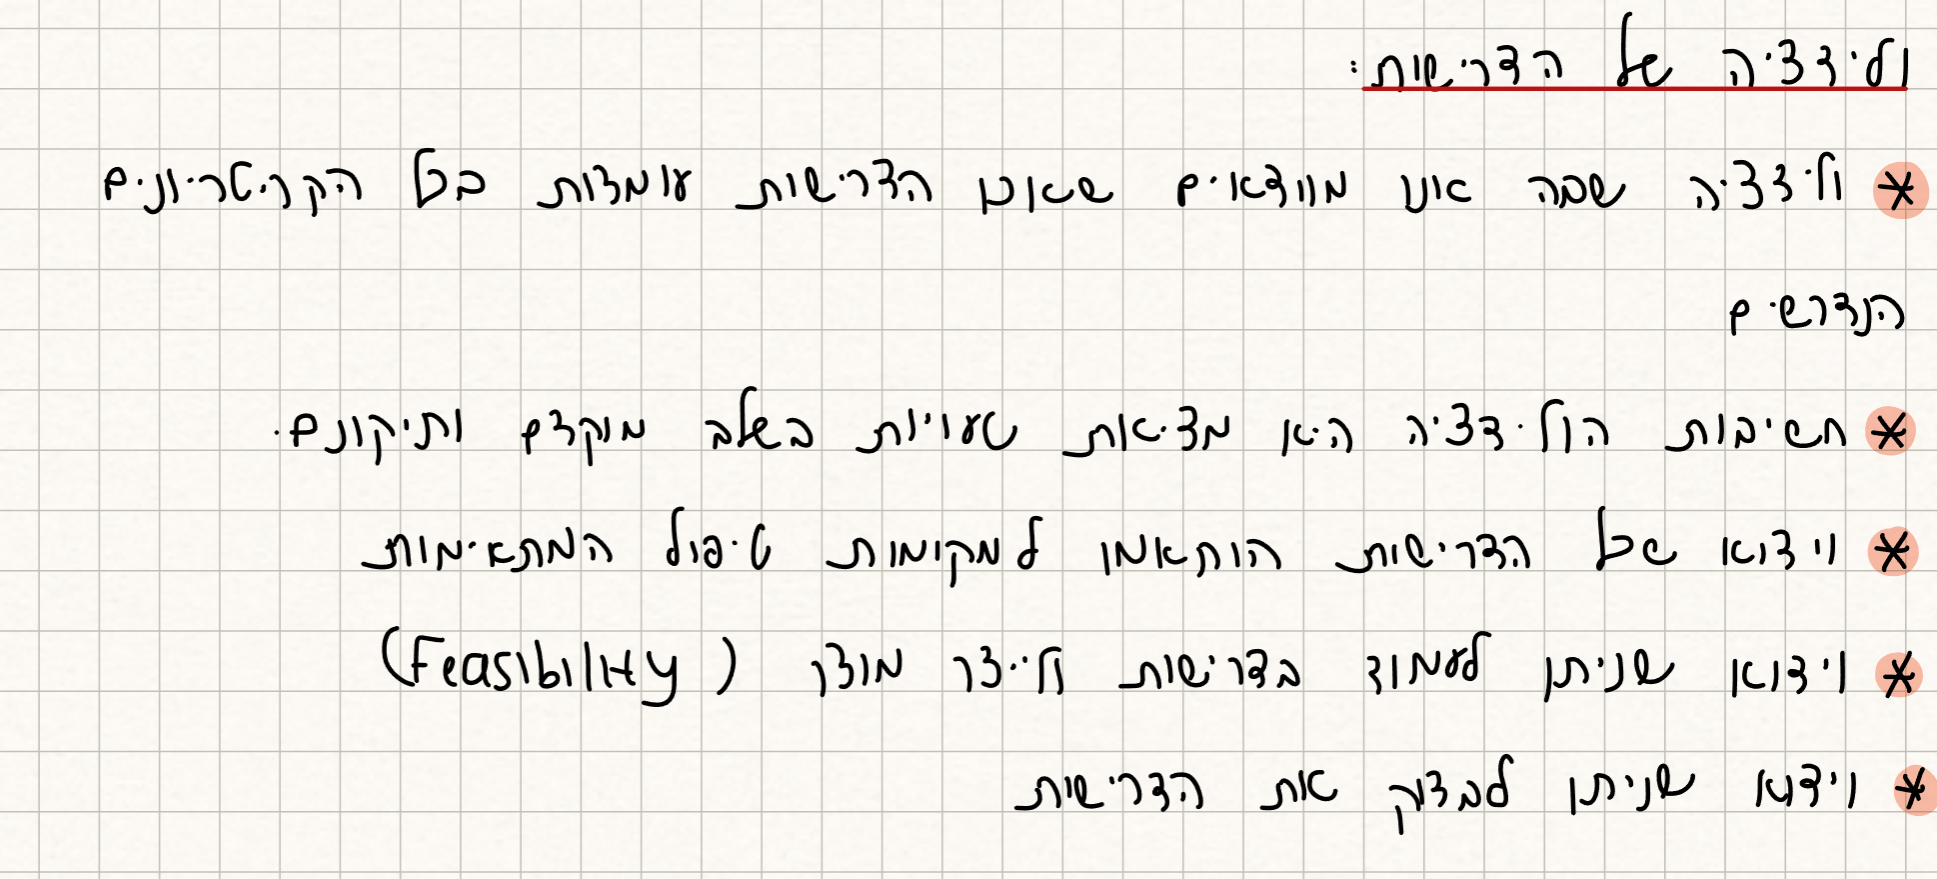 ולידציה של הדרישות:
* ולידציה שבה אנו מוודאים שאכן הדרישות עומדות בכל הקריטריונים
הנדרשים
* חשיבות הולידציה היא מציאת טעויות בשלב מוקדם ותיקונם.
* וידוא שכל הדרישות הותאמו למקומות טיפול המתאימות
* וידוא שניתן לעמוד בדרישות ולייצר מוצר (Feasibility)
* וידוא שניתן לבדוק את הדרישות